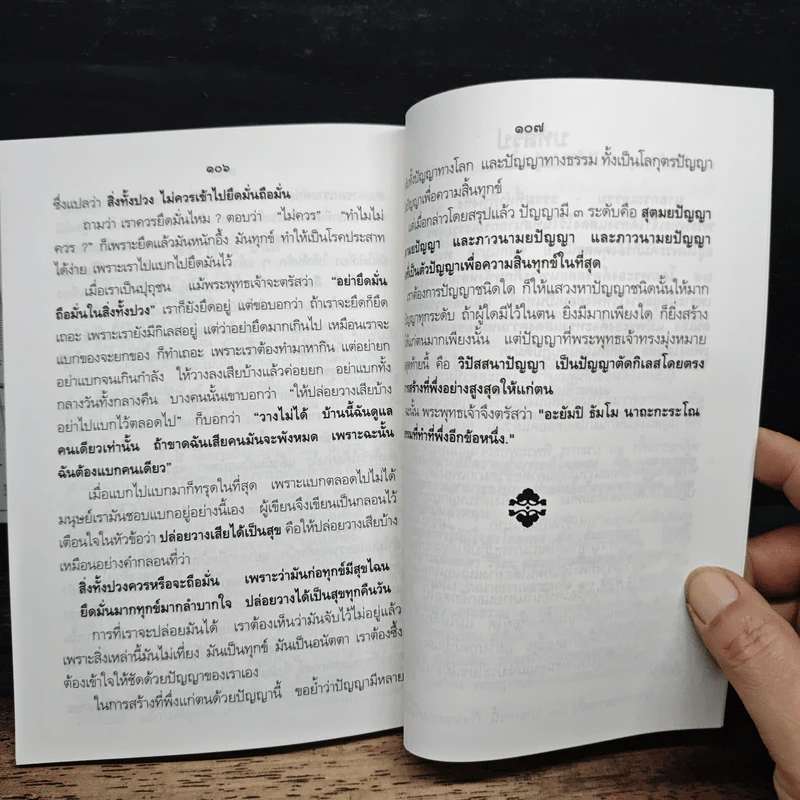 ๑๐๖
ซึ่งแปลว่า สิ่งทั้งปวง ไม่ควรเข้าไปยึดมั่นถือมั่น
ถามว่า เราควรยึดมั่นไหม ? ตอบว่า "ไม่ควร" "ทำไมไม่
ควร ?" ก็เพราะยึดแล้วมันหนักอึ้ง มันทุกข์ ทำให้เป็นโรคประสาท
ได้ง่าย เพราะเราไปแบกไปยึดมันไว้
เมื่อเราเป็นปุถุชน แม้พระพุทธเจ้าจะตรัสว่า "อย่ายึดมั่น
ถือมั่นในสิ่งทั้งปวง" เราก็ยังยึดอยู่ แต่ขอบอกว่า ถ้าเราจะยึดก็ยึด
เถอะ เพราะเรายังมีกิเลสอยู่ แต่ว่าอย่ายึดมากเกินไป เหมือนเราจะ
แบกของจะยกของ ก็ทำเถอะ เพราะเราต้องทำมาหากิน แต่อย่ายก
อย่าแบกจนเกินกำลัง ให้วางลงเสียบ้างแล้วค่อยยก อย่าแบกทั้ง
กลางวันทั้งกลางคืน บางคนนั้นเขาบอกว่า "ให้ปล่อยวางเสียบ้าง
อย่าไปแบกไว้ตลอดไป" ก็บอกว่า "วางไม่ได้ บ้านนี้ฉันดูแล
คนเดียวเท่านั้น ถ้าขาดฉันเสียคนมันจะพังหมด เพราะฉะนั้น
ฉันต้องแบกคนเดียว"
เมื่อแบกไปแบกมาก็ทรุดในที่สุด เพราะแบกตลอดไปไม่ได้
มนุษย์เรามันชอบแบกอยู่อย่างนี้เอง ผู้เขียนจึงเขียนเป็นกลอนไว้
เตือนใจในหัวข้อว่า ปล่อยวางเสียได้เป็นสุข คือให้ปล่อยวางเสียบ้าง
เหมือนอย่างคำกลอนที่ว่า
สิ่งทั้งปวงควรหรือจะถือมั่น เพราะว่ามันก่อทุกข์มีสุขไฉน
ยึดมั่นมากทุกข์มากลำบากใจ ปล่อยวางได้เป็นสุขทุกคืนวัน
การที่เราจะปล่อยมันได้ เราต้องเห็นว่ามันจับไว้ไม่อยู่แล้ว
เพราะสิ่งเหล่านี้มันไม่เที่ยง มันเป็นทุกข์ มันเป็นอนัตตา เราต้องซึ้ง
ต้องเข้าใจให้ชัดด้วยปัญญาของเราเอง
ในการสร้างที่พึ่งแก่ตนด้วยปัญญานี้ ขอย้ำว่าปัญญามีหลาย
๑๐๗
ปัญญาทางโลก และปัญญาทางธรรม ทั้งเป็นโลกุตรปัญญา
ปัญญาเพื่อความสิ้นทุกข์
เมื่อกล่าวโดยสรุปแล้ว ปัญญามี ๓ ระดับคือ สุตมยปัญญา
และภาวนามยปัญญา และภาวนามยปัญญา
เป็นตัวปัญญาเพื่อความสิ้นทุกข์ในที่สุด
เราต้องการปัญญาชนิดใด ก็ให้แสวงหาปัญญาชนิดนั้นให้มาก
ปัญญาทุกระดับ ถ้าผู้ใดมีไว้ในตน ยิ่งมีมากเพียงใด ก็ยิ่งสร้าง
แก่ตนมากเพียงนั้น แต่ปัญญาที่พระพุทธเจ้าทรงมุ่งหมาย
สุดท้ายนี้ คือ วิปัสสนาปัญญา เป็นปัญญาตัดกิเลสโดยตรง
การสร้างที่พึ่งอย่างสูงสุดให้แก่ตน
พระพุทธเจ้าจึงตรัสว่า "อะยัมปิ ธัมโม นาถะกะระโณ
ธรรมที่ทำที่พึ่งอีกข้อหนึ่ง."